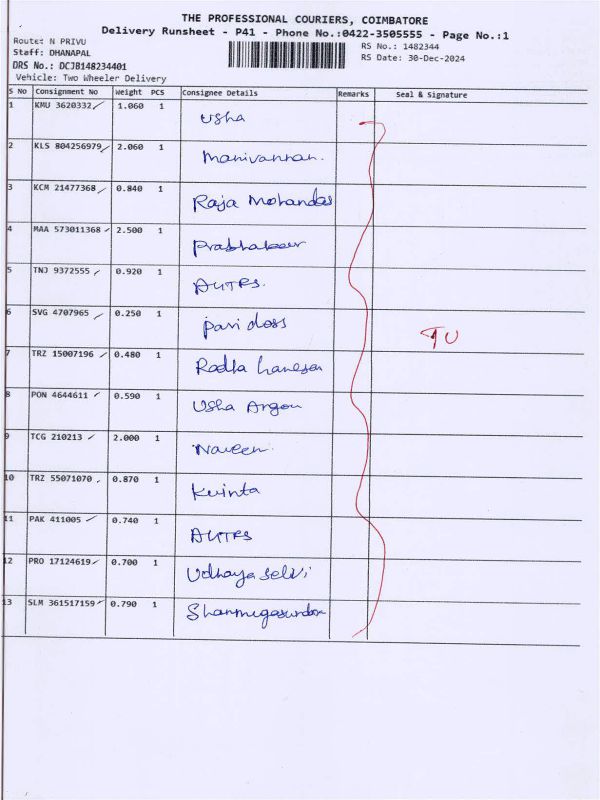 THE PROFESSIONAL COURIERS, COIMBATORE
Delivery Runsheet - P41 - Phone No.:0422-3505555 - Page No.:1
Route: N PRIVU
RS No.: 1482344
Staff: DHANAPAL
RS Date: 30-Dec-2024
DRS No.: DCJB148234401
Vehicle: Two Wheeler Delivery
S No Consignment No Weight PCS Consignee Details Remarks Seal & Signature
1 KMU 3620332 1.060 1 Usha
2 KLS 804256979 2.060 1 Manivannan.
3 KCM 21477368 0.840 1 Raja Mohandas
4 MAA 573011368 2.500 1 Prabhakar
5 TNJ 9372555 0.920 1
6 SVG 4707965 0.250 1 pavi doss
7 TRZ 15007196 0.480 1 Radha
8 PON 4644611 0.590 1 Usha
9 TCG 210213 2.000 1 Naveen.
10 TRZ 55071070 0.870 1
11 PAK 411005 0.740 1
12 PRO 17124619 0.700 1 Udhaya Selvi
13 SLM 361517159 0.790 1 Shanmugasundar